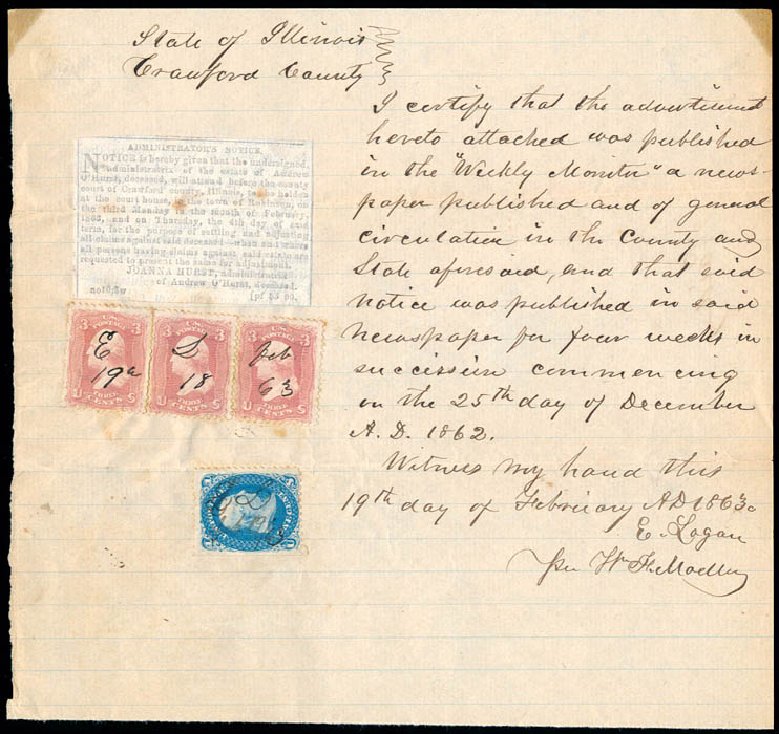 State of Illinois
Crawford County
I certify that the advertisment
hereto attached was published
in the "Weekly Monitor" a news-
paper published and of general
circulation in the County and
State aforesaid, and that said
notice was published in said
newspaper for four weeks in
succession commencing
on the 25th day of December
A. D. 1862.
Witness my hand this
19th day of February AD 1863
E. Logan
per Wm
ADMINISTRATOR'S NOTICE.
NOTICE is hereby given that the undersigned,
administratrix of the estate of Andrew
O'Hurst, deceased, will attend before the county
court of Crawford county, Illinois, to be holden
at the court house, in the town of Robinson, on
the third Monday in the month of February,
1863, and on Thursday, the 4th day of said
term, for the purpose of settling and adjusting
all claims against said deceased—when and where
all persons having claims against said estate are
requested to present the same for adjustment.
JOANNA HURST, administratrix
of Andrew O'Hurst, deceased.
3 U.S. POSTAGE 3
E
19
U THREE CENTS S
3 U.S. POSTAGE 3
18
U THREE CENTS S
3 U.S. POSTAGE 3
Feb
63
U THREE CENTS S